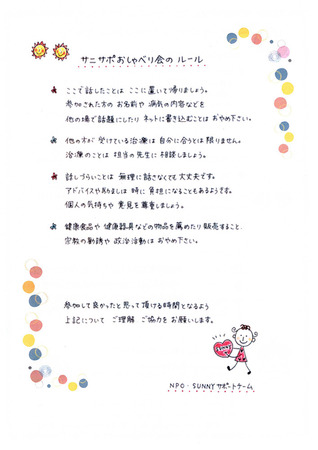 サニサポおしゃべり会の ルール
ここで話したことは ここに置いて帰りましょう。
参加された方の お名前や 病気の内容などを
他の場で話題にしたり ネットに書き込むことは おやめ下さい。
他の方が 受けている治療は 自分に合うとは限りません。
治療のことは 担当の先生に 相談しましょう。
話しづらいことは 無理に話さなくても 大丈夫です。
アドバイスや励ましは 時に 負担になることもあるようです。
個人の気持ちや 意見を 尊重しましょう。
健康食品や 健康器具などの物品を 薦めたり 販売すること
宗教の勧誘や 政治活動は おやめ下さい。
参加して良かったと思って頂ける時間となるよう
上記について ご理解 ご協力を お願いします。
NPO・SUNNYサポートチーム